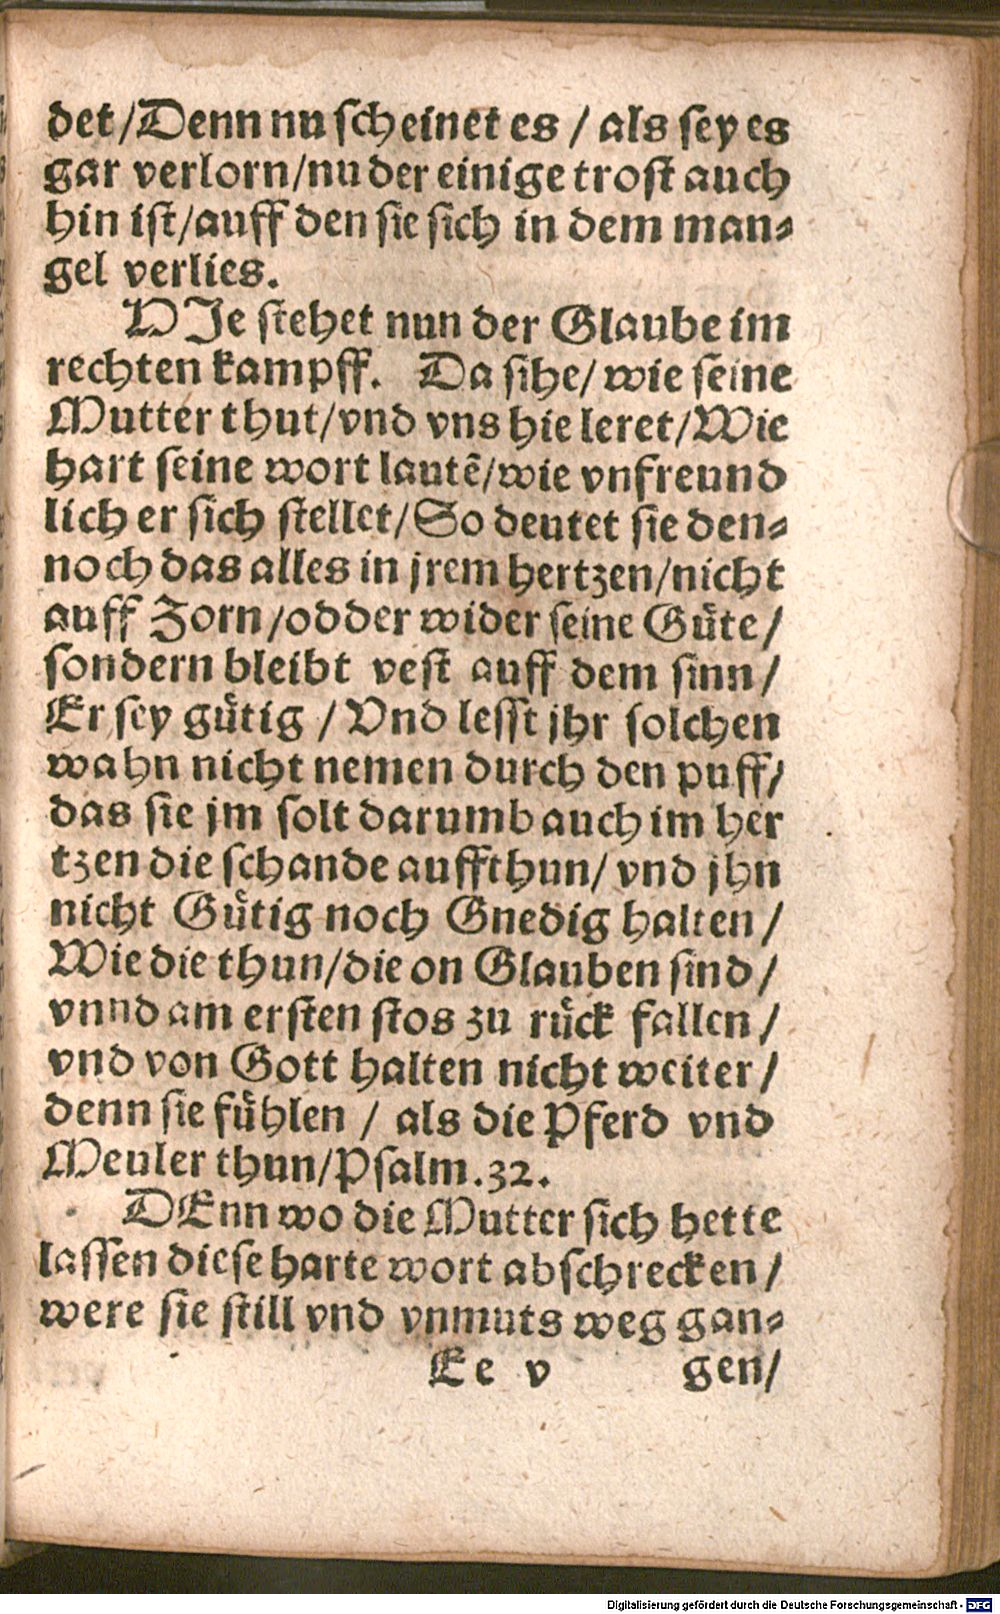 det/Denn nu scheinet es / als sey es
gar verlorn/nu der einige trost auch
hin ist/auff den sie sich in dem man-
gel verlies.
HIe stehet nun der Glaube im
rechten kampff. Da sihe/ wie seine
Mutter thut/vnd vns hie leret/Wie
hart seine wort lautē/wie vnfreund
lich er sich stellet/So deutet sie den-
noch das alles in jrem hertzen/nicht
auff Zorn/odder wider seine Güte/
sondern bleibt vest auff dem sinn/
Er sey gütig / Vnd lesst jhr solchen
wahn nicht nemen durch den puff/
das sie jm solt darumb auch im her
tzen die schande auffthun/ vnd jhn
nicht Gütig noch Gnedig halten/
Wie die thun/die on Glauben sind/
vnnd am ersten stos zu rück fallen/
vnd von Gott halten nicht weiter/
denn sie fühlen / als die Pferd vnd
Meuler thun/Psalm.32.
DEnn wo die Mutter sich hette
lassen diese harte wort abschrecken/
were sie still vnd vnmuts weg gan-
Ee v gen/
Digitalisierung gefördert durch die Deutsche Forschungsgemeinschaft - DFG